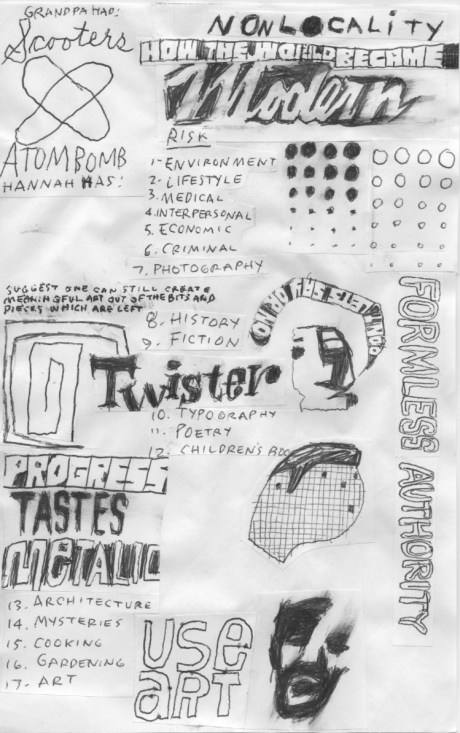 GRANDPA HAD:
Scooters
ATOMBOMB
HANNAH HAS:
NONLOCALITY
HOW THE WORLD BECAME
Modern
RISK
1- ENVIRONMENT
2- LIFESTYLE
3. MEDICAL
4. INTERPERSONAL
5. ECONOMIC
6. CRIMINAL
7. PHOTOGRAPHY
SUGGEST ONE CAN STILL CREATE
MEANINGFUL ART OUT OF THE BITS AND
PIECES WHICH ARE LEFT
8- HISTORY
9- FICTION
Twister
10. TYPOGRAPHY
11. POETRY
12. CHILDREN'S BOO
FORMLESS AUTHORITY
PROGRESS
TASTES
METALIC
13. ARCHITECTURE
14. MYSTERIES
15. COOKING
16. GARDENING
17- ART
USE
ART